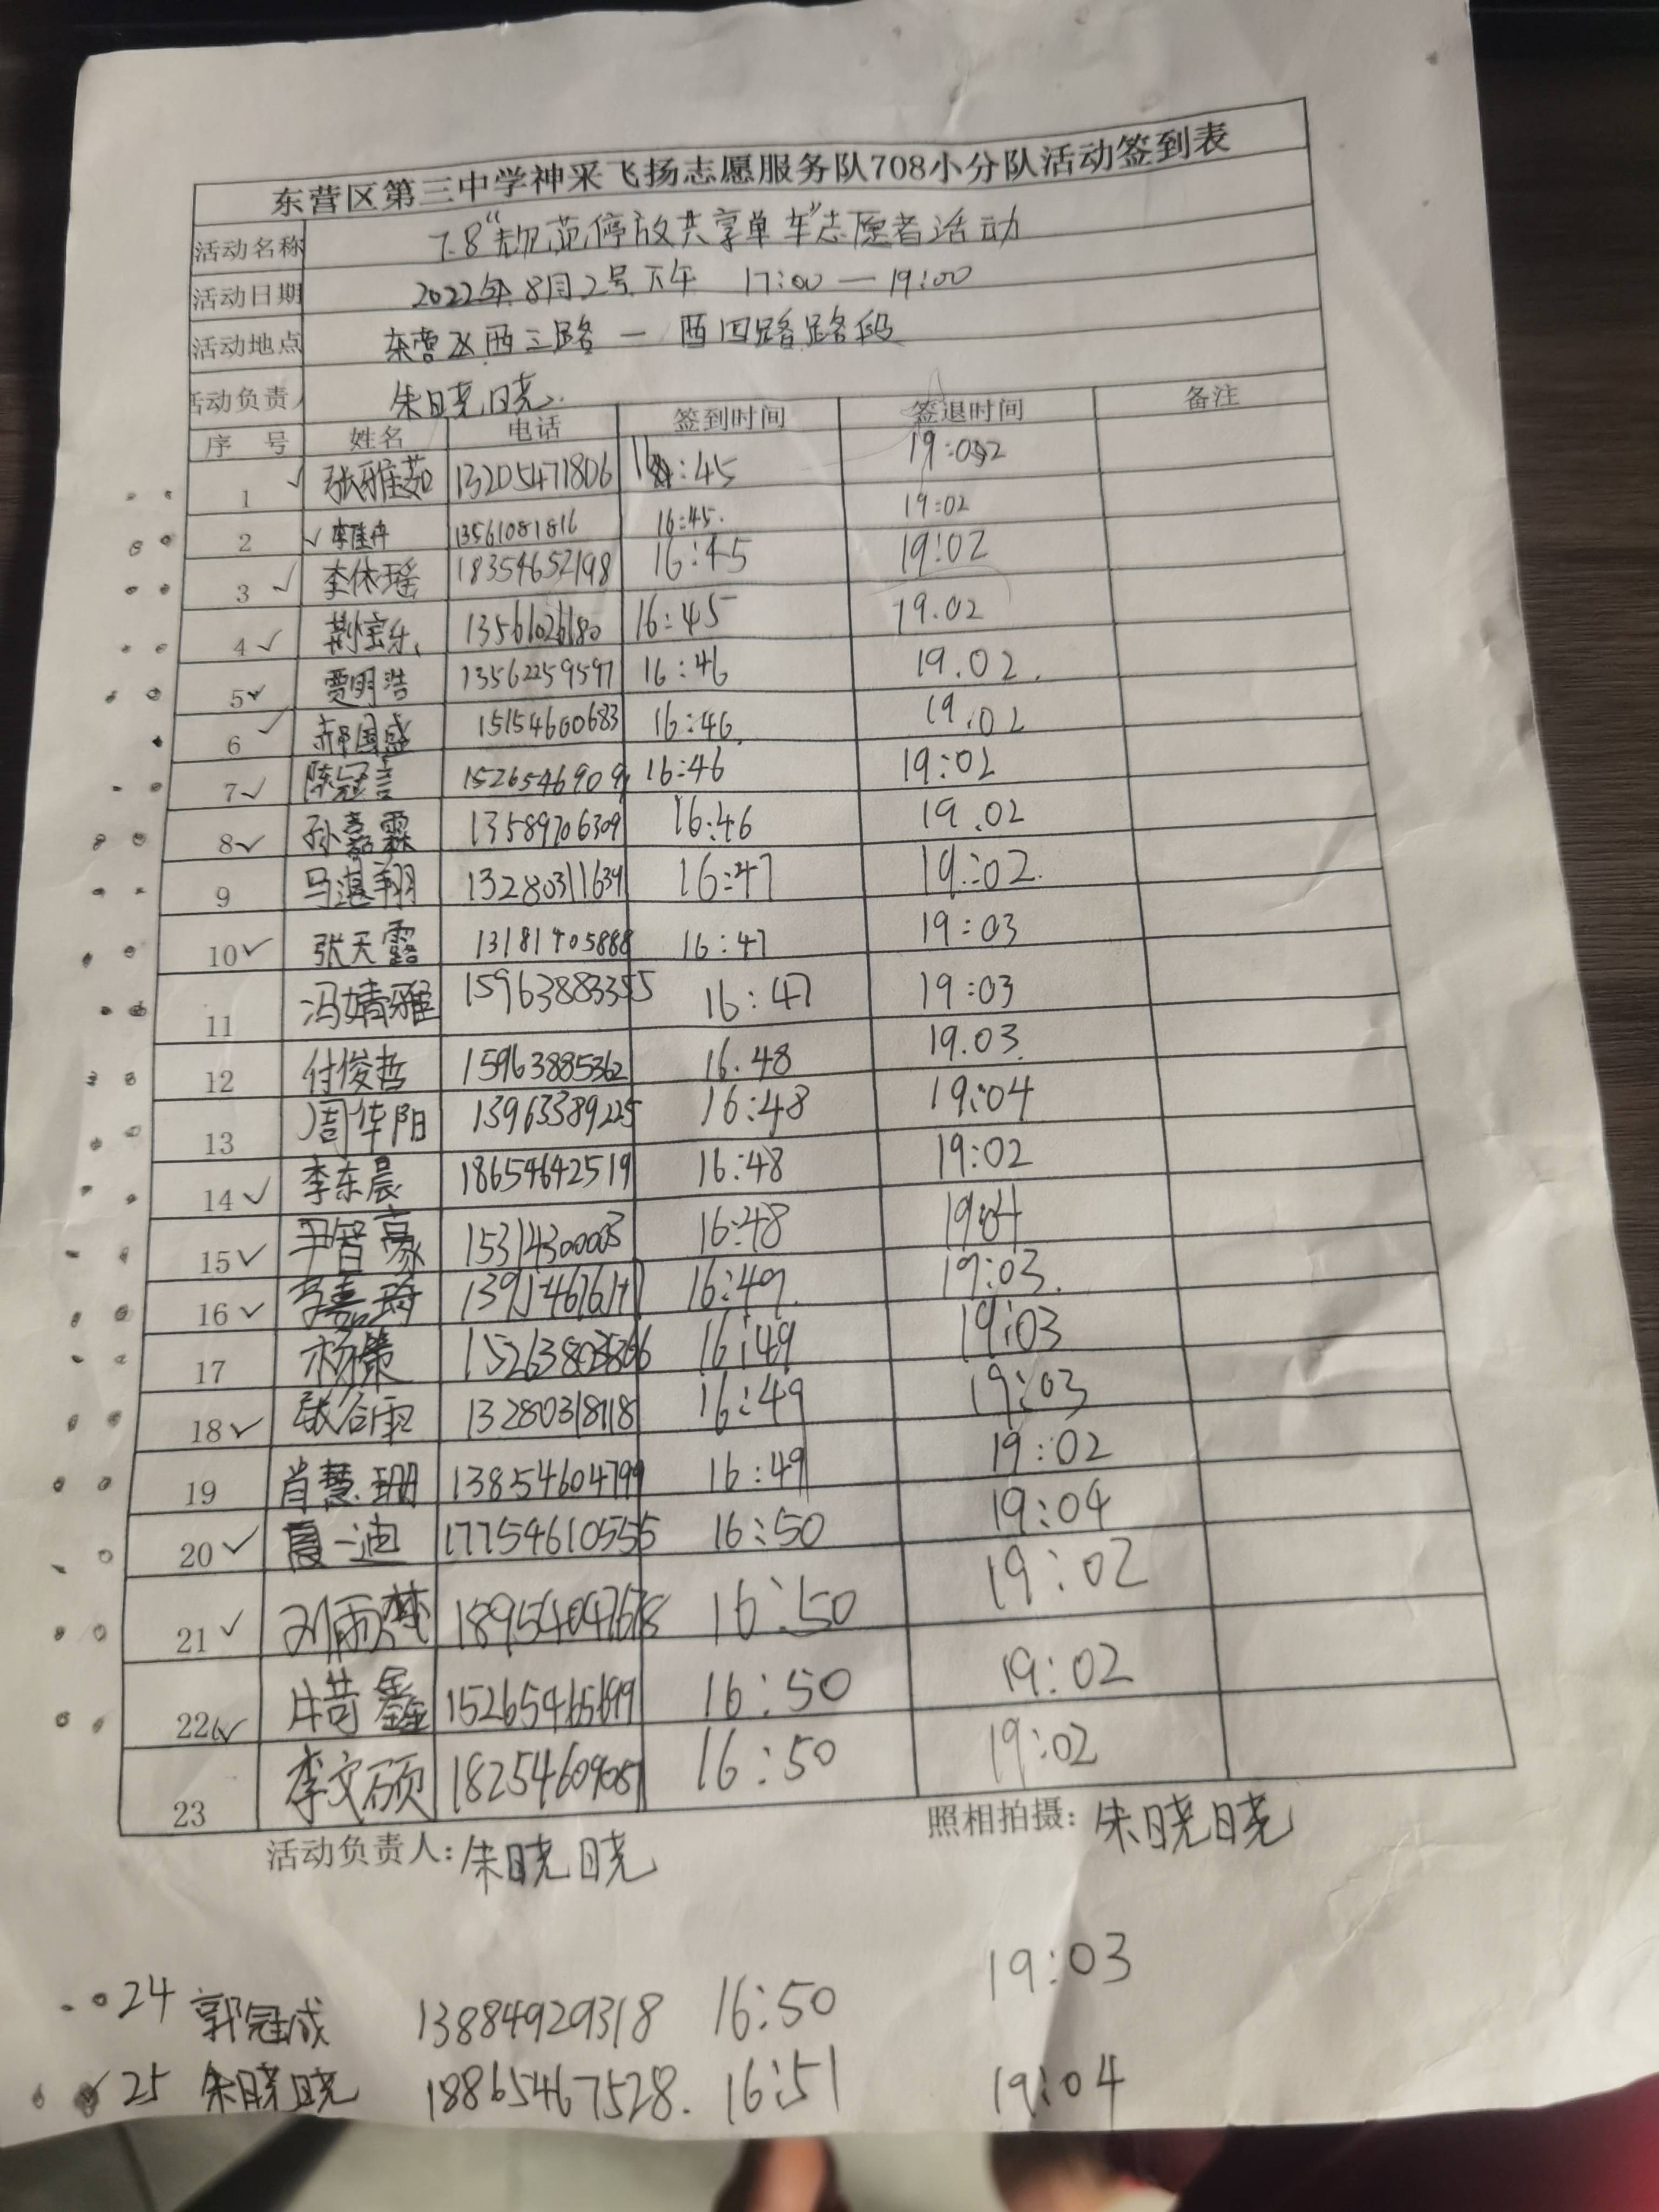 东营区第三中学神采飞扬志愿服务队708小分队活动签到表
活动名称 7.8“规范停放共享单车”志愿者活动
活动日期 2022年8月2号下午 17:00—19:00
活动地点 东营区西三路—西四路路段
活动负责人 朱晓晓
序 号 姓名 电话 签到时间 签退时间 备注
1 ✓ 张雅茹 13205471806 :45 19:02
2 ✓ 李佳冉 13561081816 16:45. 19:02
3 ✓ 李依瑶 18354652198 16:45 19:02
4 ✓ 荆宝乐 13561026180 16:45 19.02
5 ✓ 贾明浩 13562259597 16:46 19.02.
6 ✓ 郝国盛 15154600683 16:46. 19:02
7 ✓ 陈冠言 1526546909 16:46 19:02
8 ✓ 孙嘉霖 13589706309 16:46 19.02
9 马湛翔 13280311639 16:47 19:02.
10 ✓ 张天露 13181405888 16:47 19:03
11 冯婧雅 15963883355 16:47 19:03
12 付俊哲 15963885362 16.48 19.03.
13 周华阳 13963389225 16:48 19:04
14 ✓ 李东晨 18654642519 16:48 19:02
15 ✓ 尹智豪 15314300003 16:48 19:04
16 ✓ 李嘉琦 16:49. 19:03.
17 杨 16:49 19:03
18 ✓ 张谷雨 13280318118 16:49 19:03
19 肖慧珊 13854604799 16:49 19:02
20 ✓ 夏一迪 17754610555 16:50 19:04
21 ✓ 刘雨梦 16:50 19:02
22 ✓ 鑫 15265465699 16:50 19:02
23 李文硕 18254609081 16:50 19:02
活动负责人: 朱晓晓 照相拍摄: 朱晓晓
24 郭冠成 13884929318 16:50 19:03
25 朱晓晓 18865467528. 16:51 19:04